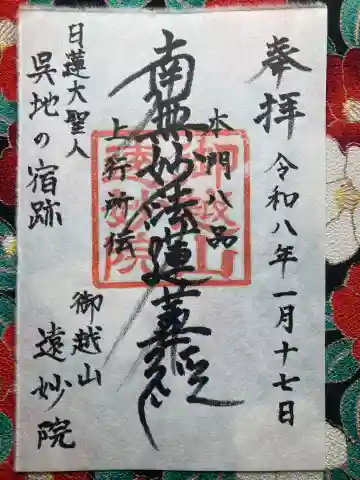 奉拝
令和八年一月十七日
本門八品
南無妙法蓮華経
上行所伝
日蓮大聖人
呉地の宿跡
御越山
遠妙院
御越山
遠妙院